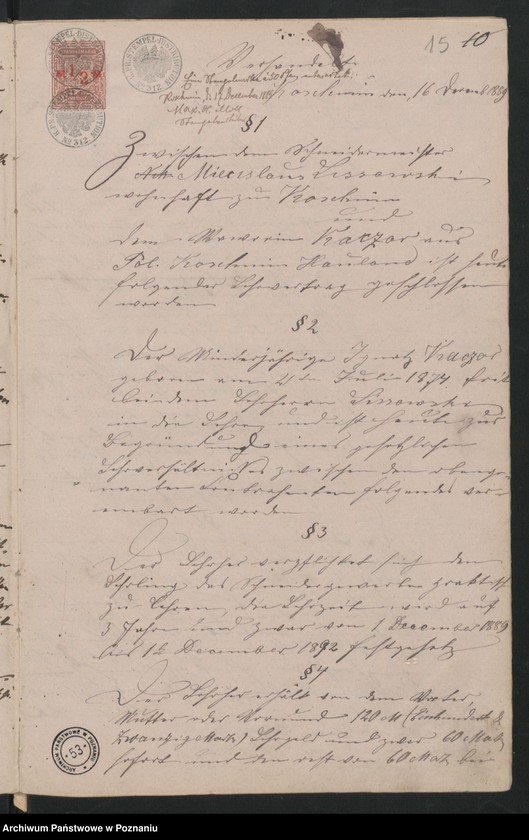 15 10
Verhandelt
Koschmin den, 16 Decemb 1889
§ 1
Zwischen dem Schneidermeister
Miecislaus Lissowski
wohnhaft zu Koschmin
und
dem Wawrzin Kaczor aus
Pol. Koschmin Hauland ist heute
folgender Lehrvertrag geschlossen
worden
§ 2
Der Minderjährige Ignatz Kaczor
geboren am Juli 1874
bei dem Lehrherrn Lissowski
in die Lehre und ist heute zur
Begründung eines gesetzlichen
Lehrverhältnisses zwischen den obenge-
nannten Contrahenten folgendes ver-
einbart worden
§ 3
Der Lehrher verpflichtet sich den
Lehrling das Schneidergewerbe praktisch
zu Lehren, die Lehrzeit wird auf
3 Jahre und zwar von 1 December 1889
bis 1t December 1892 festgesetz
§ 4
Der Lehrher erhält von dem Vater
Mutter oder Vormund 120 M (Einhundert &
Zwanzig Mark) Lehrgeld und zwar 60 Mark
sofort und den rest von 60 Mark bei
ARCHIWUM PAŃSTWOWE W POZNANIU
53
Archiwum Państwowe w Poznaniu